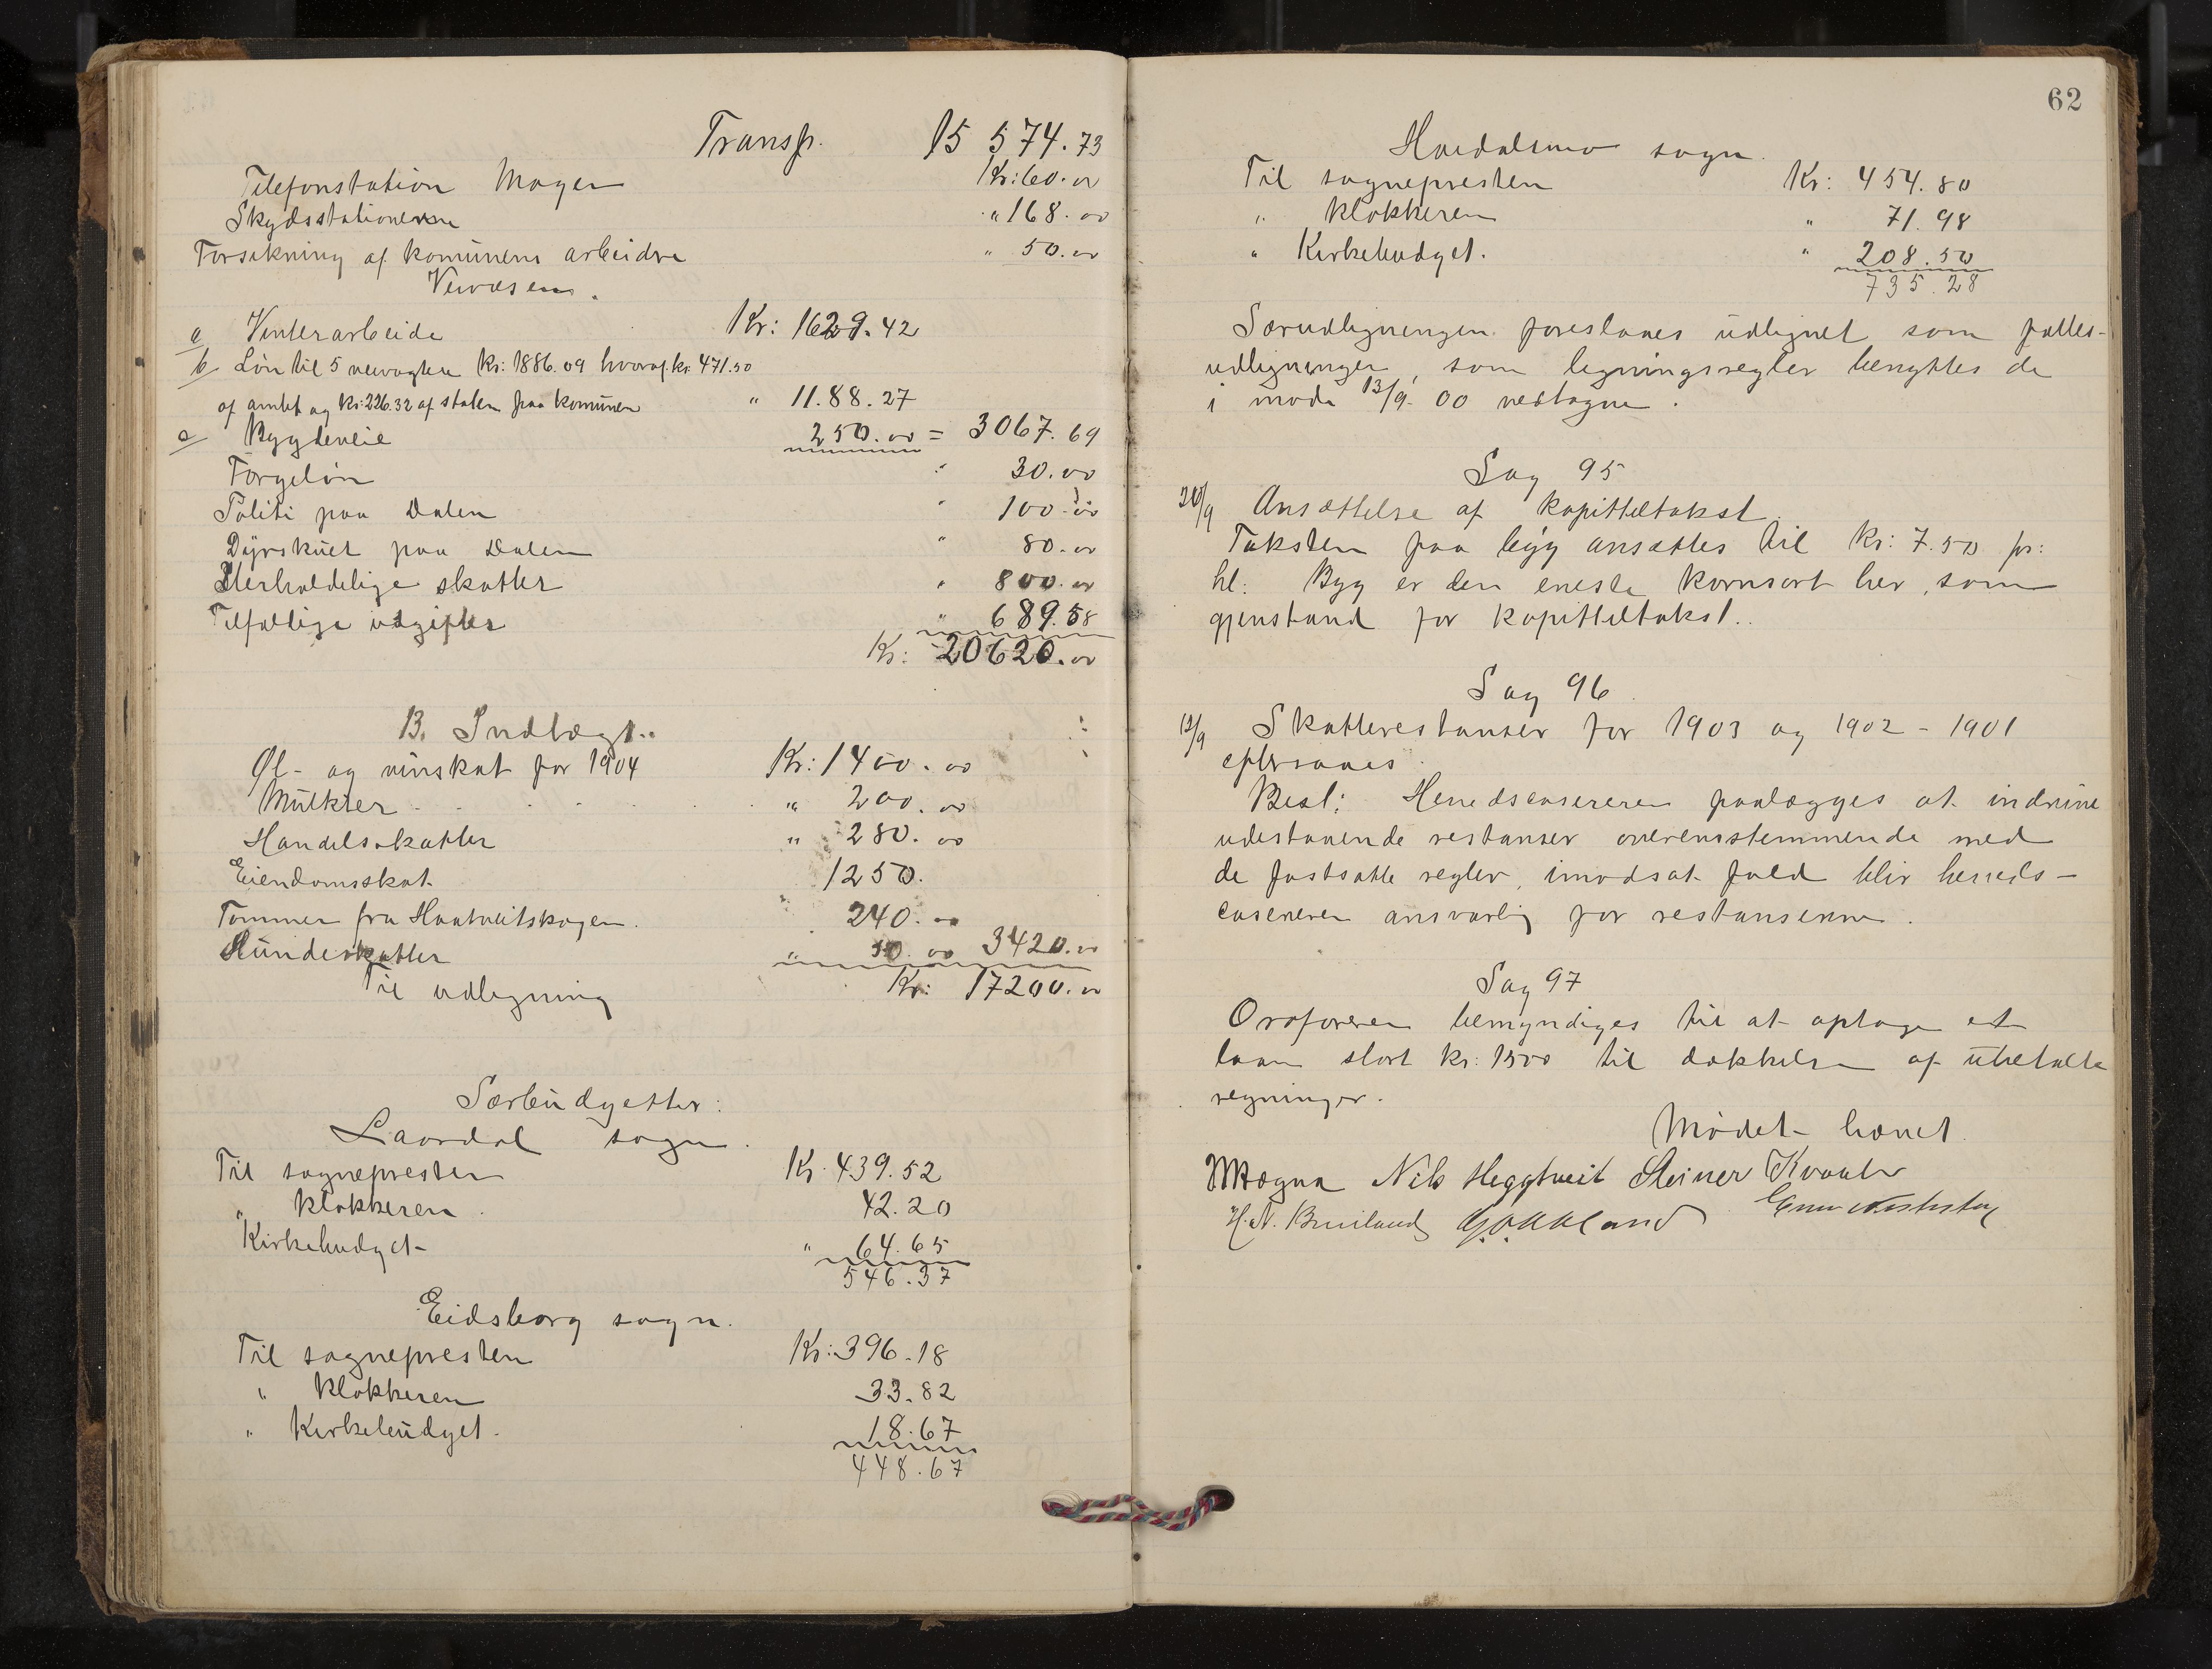 Transp. 15 574.73
Telefonstation Mogen Kr: 60.00
Skydsstationerne " 168.00
Forsikning af komunens arbeidre " 50.00
Veivæsen.
a Vinterarbeide Kr: 1629.42
b Løn til 5 veivogtere Kr: 1886.09 hvoraf kr. 471.50
af amtet og kr: 226.32 af staten paa komunen " 11.88.27
c Bygdeveie 250.00 = 3067.69
Forgeløn " 30.00
Politi paa Dalen " 100.00
Dyrskuet paa Dalen " 80.00
Uerholdelige skatter " 800.00
Tilfældige udgifter " 689.58
Kr: 20620.00
B. Indtægt.
Øl- og vinskat for 1904 Kr: 1400.00
Mulkter " 200.00
Handelsskatter " 280.00
Eiendomsskat 1250.
Tømmer fra Haatveitskogen. 240.00
Hundeskatter " 50.00 3420.00
Til udligning Kr: 17200.00
Særbudgetter:
Laardal sogn.
Til sognepresten Kr. 439.52
" klokkeren 42.20
Kirkebudget " 64.65
546.37
Eidsborg sogn.
Til sognepresten Kr: 396.18
" klokkeren 33.82
" Kirkebudget. 18.67
448.67
62
Høidalsmo sogn.
Til sognepresten Kr: 454.80
" klokkeren " 71.98
" Kirkebudget. " 208.50
735.28
Særudligningen foreslaaes udlignet som fælles-
udligninger, som ligningsregler benyttes de
i møde 13/9 00 vedtagne.
Sag 95
20/9 Ansættelse af kapitteltakst.
Taksten paa byg ansættes til kr: 7.50 pr:
hl. Byg er den eneste kornsort her, som
gjenstand for kapitteltakst.
Sag 96
12/9 Skatterestanser for 1903 og 1902 - 1901
eftersaaes.
Besl: Herredscasereren paalægges at indrive
udestaaende restanser overensstemmende med
de fastsatte regler, imodsat fald blir herreds-
casereren ansvarlig for restanserne.
Sag 97
Ordføreren bemyndiges til at optage et
laan stort kr: 1500 til dækkelse af ubetalte
regninger.
Mødet hævet.
Nils Heggtveit Steiner Kvaale